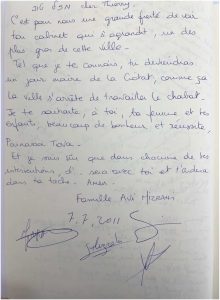 cher Thierry,
C'est pour nous une grande fierté de voir
ton cabinet qui s'agrandit, un des
plus gros de cette ville.
Tel que je te connais, tu deviendras
un jour maire de la Ciotat, comme ça
la ville s'arrête de travailler le chabat.
Je te souhaite, à toi, ta femme et tes
enfants, beaucoup de bonheur et réussite,
Parnassa Tova.
Et je suis sûr que dans chacune de tes
interventions, d'. sera avec toi et t'aidera
dans ta tâche. Amen.
Famille
7.7.2011